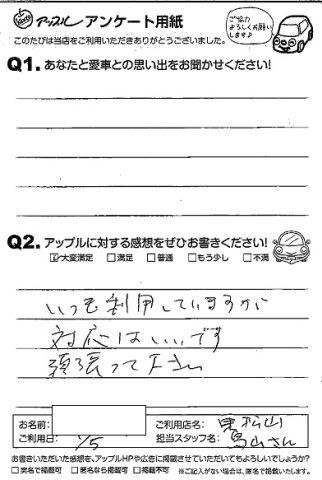 アップル アンケート用紙
このたびは当店をご利用いただきありがとうございました。
ご協力
よろしくお願い
します♪
Q1. あなたと愛車との思い出をお聞かせください!
Q2. アップルに対する感想をぜひお書きください!
☑大変満足 □満足 □普通 □もう少し □不満
いつも利用していますが
対応はいいです
頑張って下さい
お名前:
ご利用店名: 東松山
ご利用日: 1/5
担当スタッフ名: 鳥山さん
お書きいただいた感想を、アップルHPや広告に掲載させていただいてもよろしいでしょうか?
□実名で掲載可 □匿名なら掲載可 □掲載不可 ※ご記入がない場合は、匿名で掲載いたします。